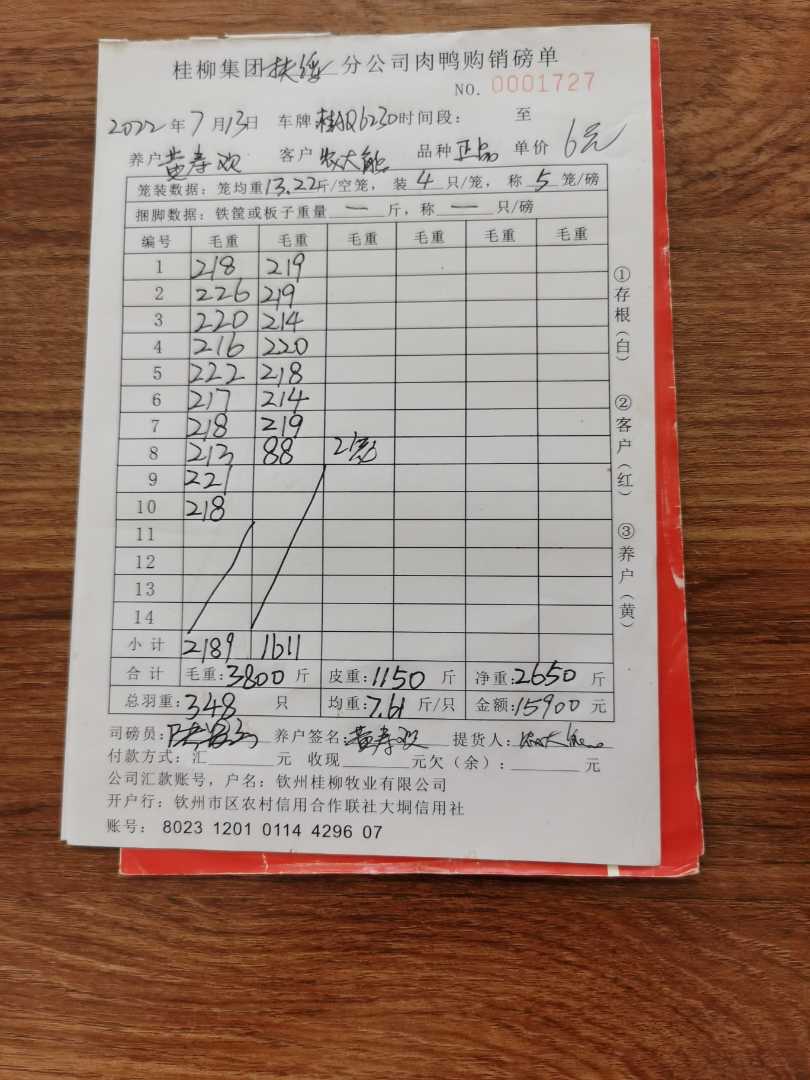 桂柳集团扶绥分公司肉鸭购销磅单
NO. 0001727
2022年7月13日 车牌 桂AQ6230 时间段： 至
养户 黄寿欢 客户 农大能 品种 正品 单价 6元
笼装数据：笼均重13.22斤/空笼，装4只/笼，称5笼/磅
捆脚数据：铁筐或板子重量—斤，称—只/磅
编号 毛重 毛重 毛重 毛重 毛重 毛重
1 218 219
2 226 219
3 220 214
4 216 220
5 222 218
6 217 214
7 218 219
8 213 88 2笼
9 221
10 218
11
12
13
14
小计 2189 1611
合计 毛重:3800斤 皮重:1150斤 净重:2650斤
总羽重:348只 均重:7.61斤/只 金额:15900元
司磅员: 养户签名:黄寿欢 提货人:农大能
付款方式：汇 元 收现 元欠（余）： 元
公司汇款账号，户名：钦州桂柳牧业有限公司
开户行：钦州市区农村信用合作联社大垌信用社
账号： 8023 1201 0114 4296 07
①存根（白）
②客户（红）
③养户（黄）